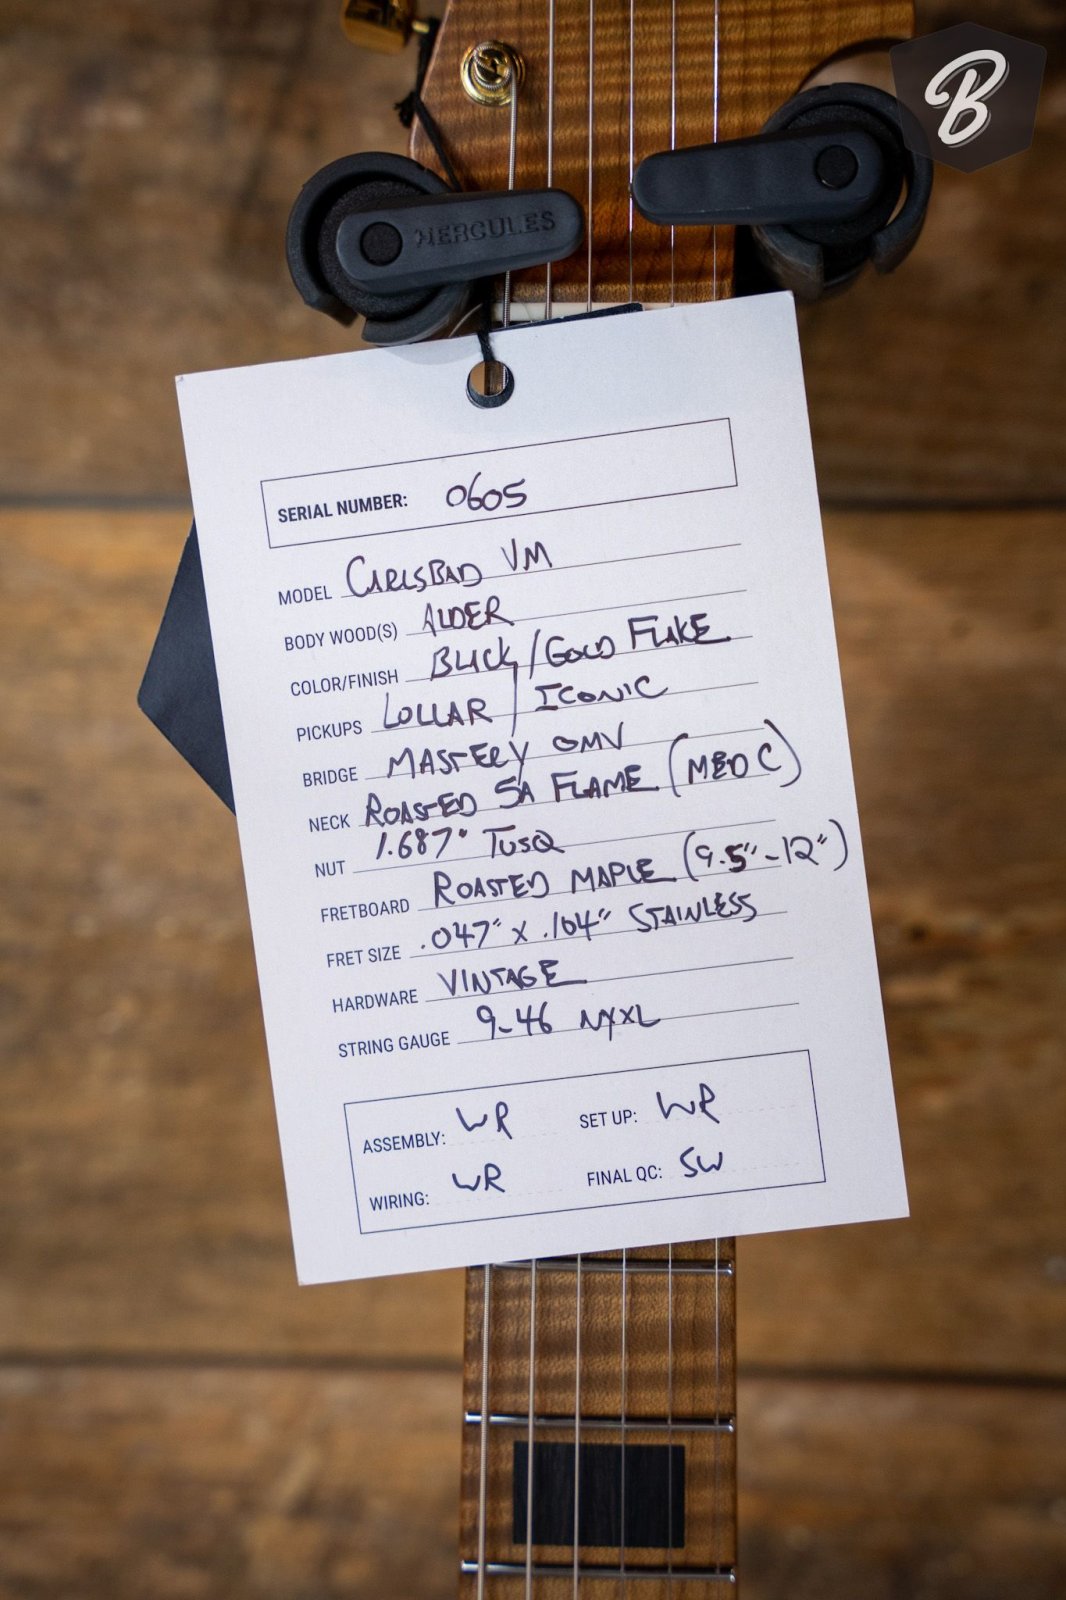 B
HERCULES
SERIAL NUMBER: 0605
MODEL CARLSBAD VM
BODY WOOD(S) ALDER
COLOR/FINISH BLACK/GOLD FLAKE
PICKUPS LOLLAR / ICONIC
BRIDGE MASTERY OMV
NECK ROASTED 5A FLAME (MED C)
NUT 1.687" TUSQ
FRETBOARD ROASTED MAPLE (9.5"-12")
FRET SIZE .047" x .104" STAINLESS
HARDWARE VINTAGE
STRING GAUGE 9-46 NYXL
ASSEMBLY: WR SET UP: WR
WIRING: WR FINAL QC: SW